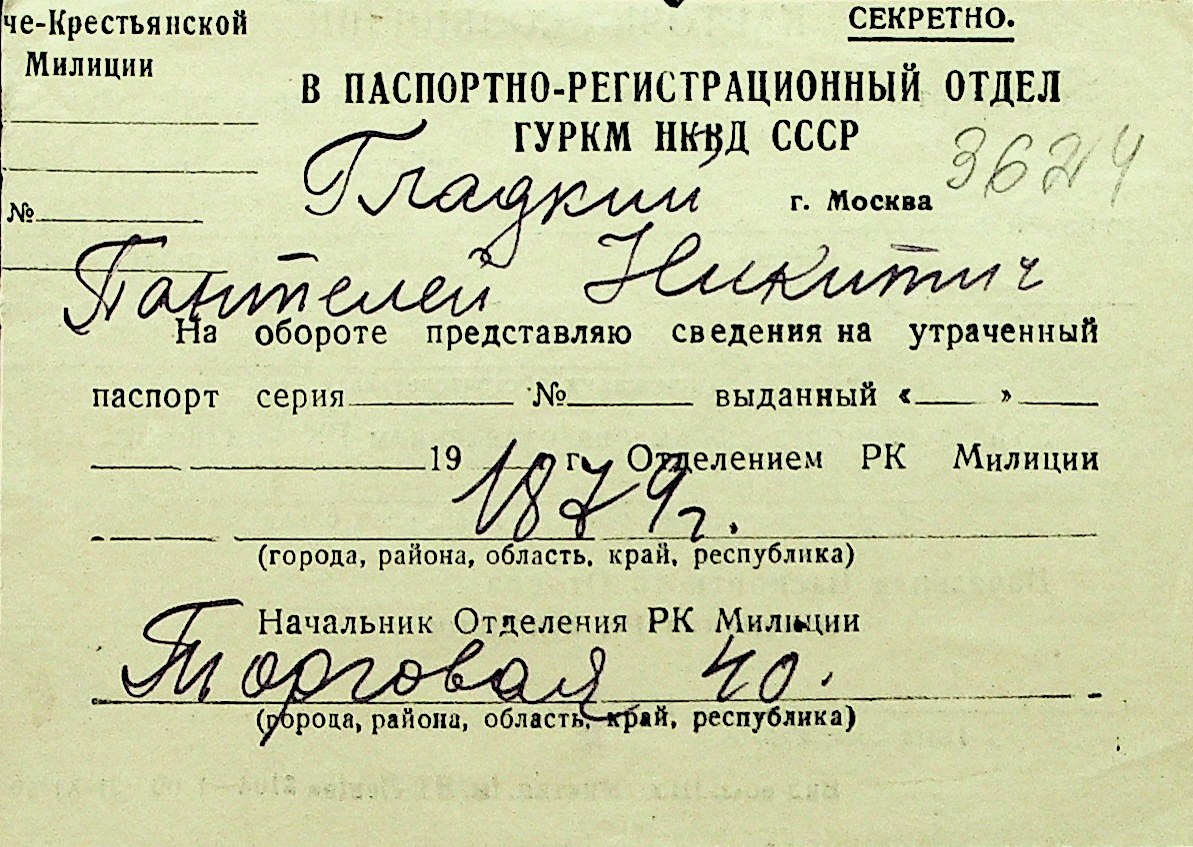 че-Крестьянской
Милиции
№
СЕКРЕТНО.
В ПАСПОРТНО-РЕГИСТРАЦИОННЫЙ ОТДЕЛ
ГУРКМ НКВД СССР
3624
Гладкий
г. Москва
Пантелей Никитич
На обороте представляю сведения на утраченный
паспорт серия № выданный « »
19 г. Отделением РК Милиции
1879г.
(города, района, область, край, республика)
Начальник Отделения РК Милиции
Торговая 40.
(города, района, область, край, республика)